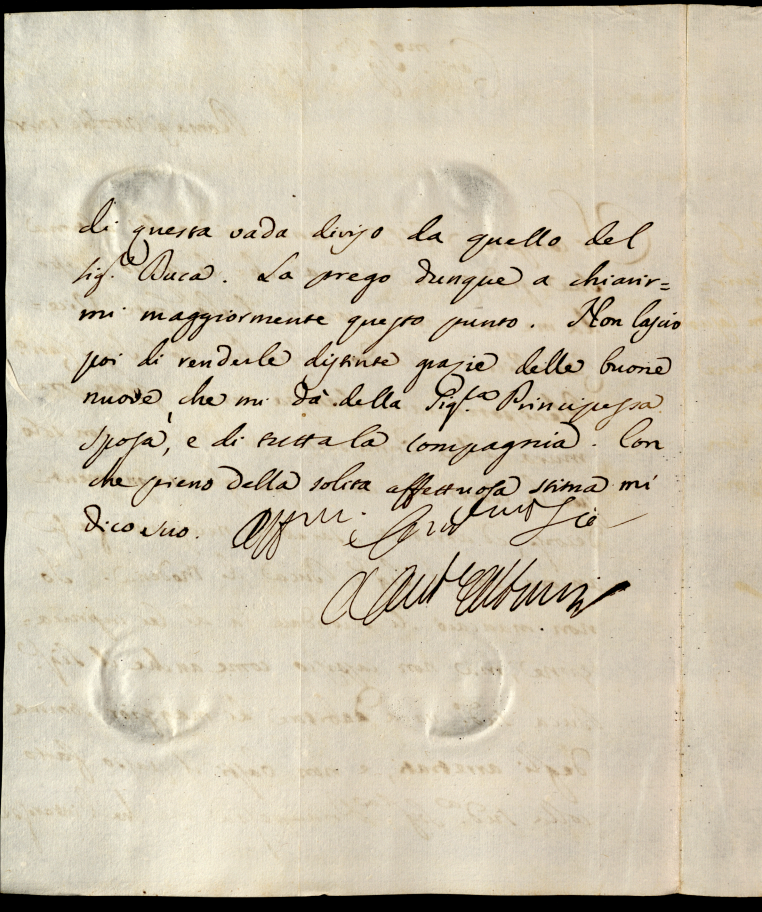 di questa vada diviso da quello del
Sig.e Duca. La prego dunque a chiarir=
mi maggiormente questo punto. Non lascio
poi di renderle distinte grazie delle buone
nuove, che mi dà della Sig.ra Principessa
Sposa, e di tutta la compagnia. Con
che pieno della solita affettuosa stima mi
dico suo.